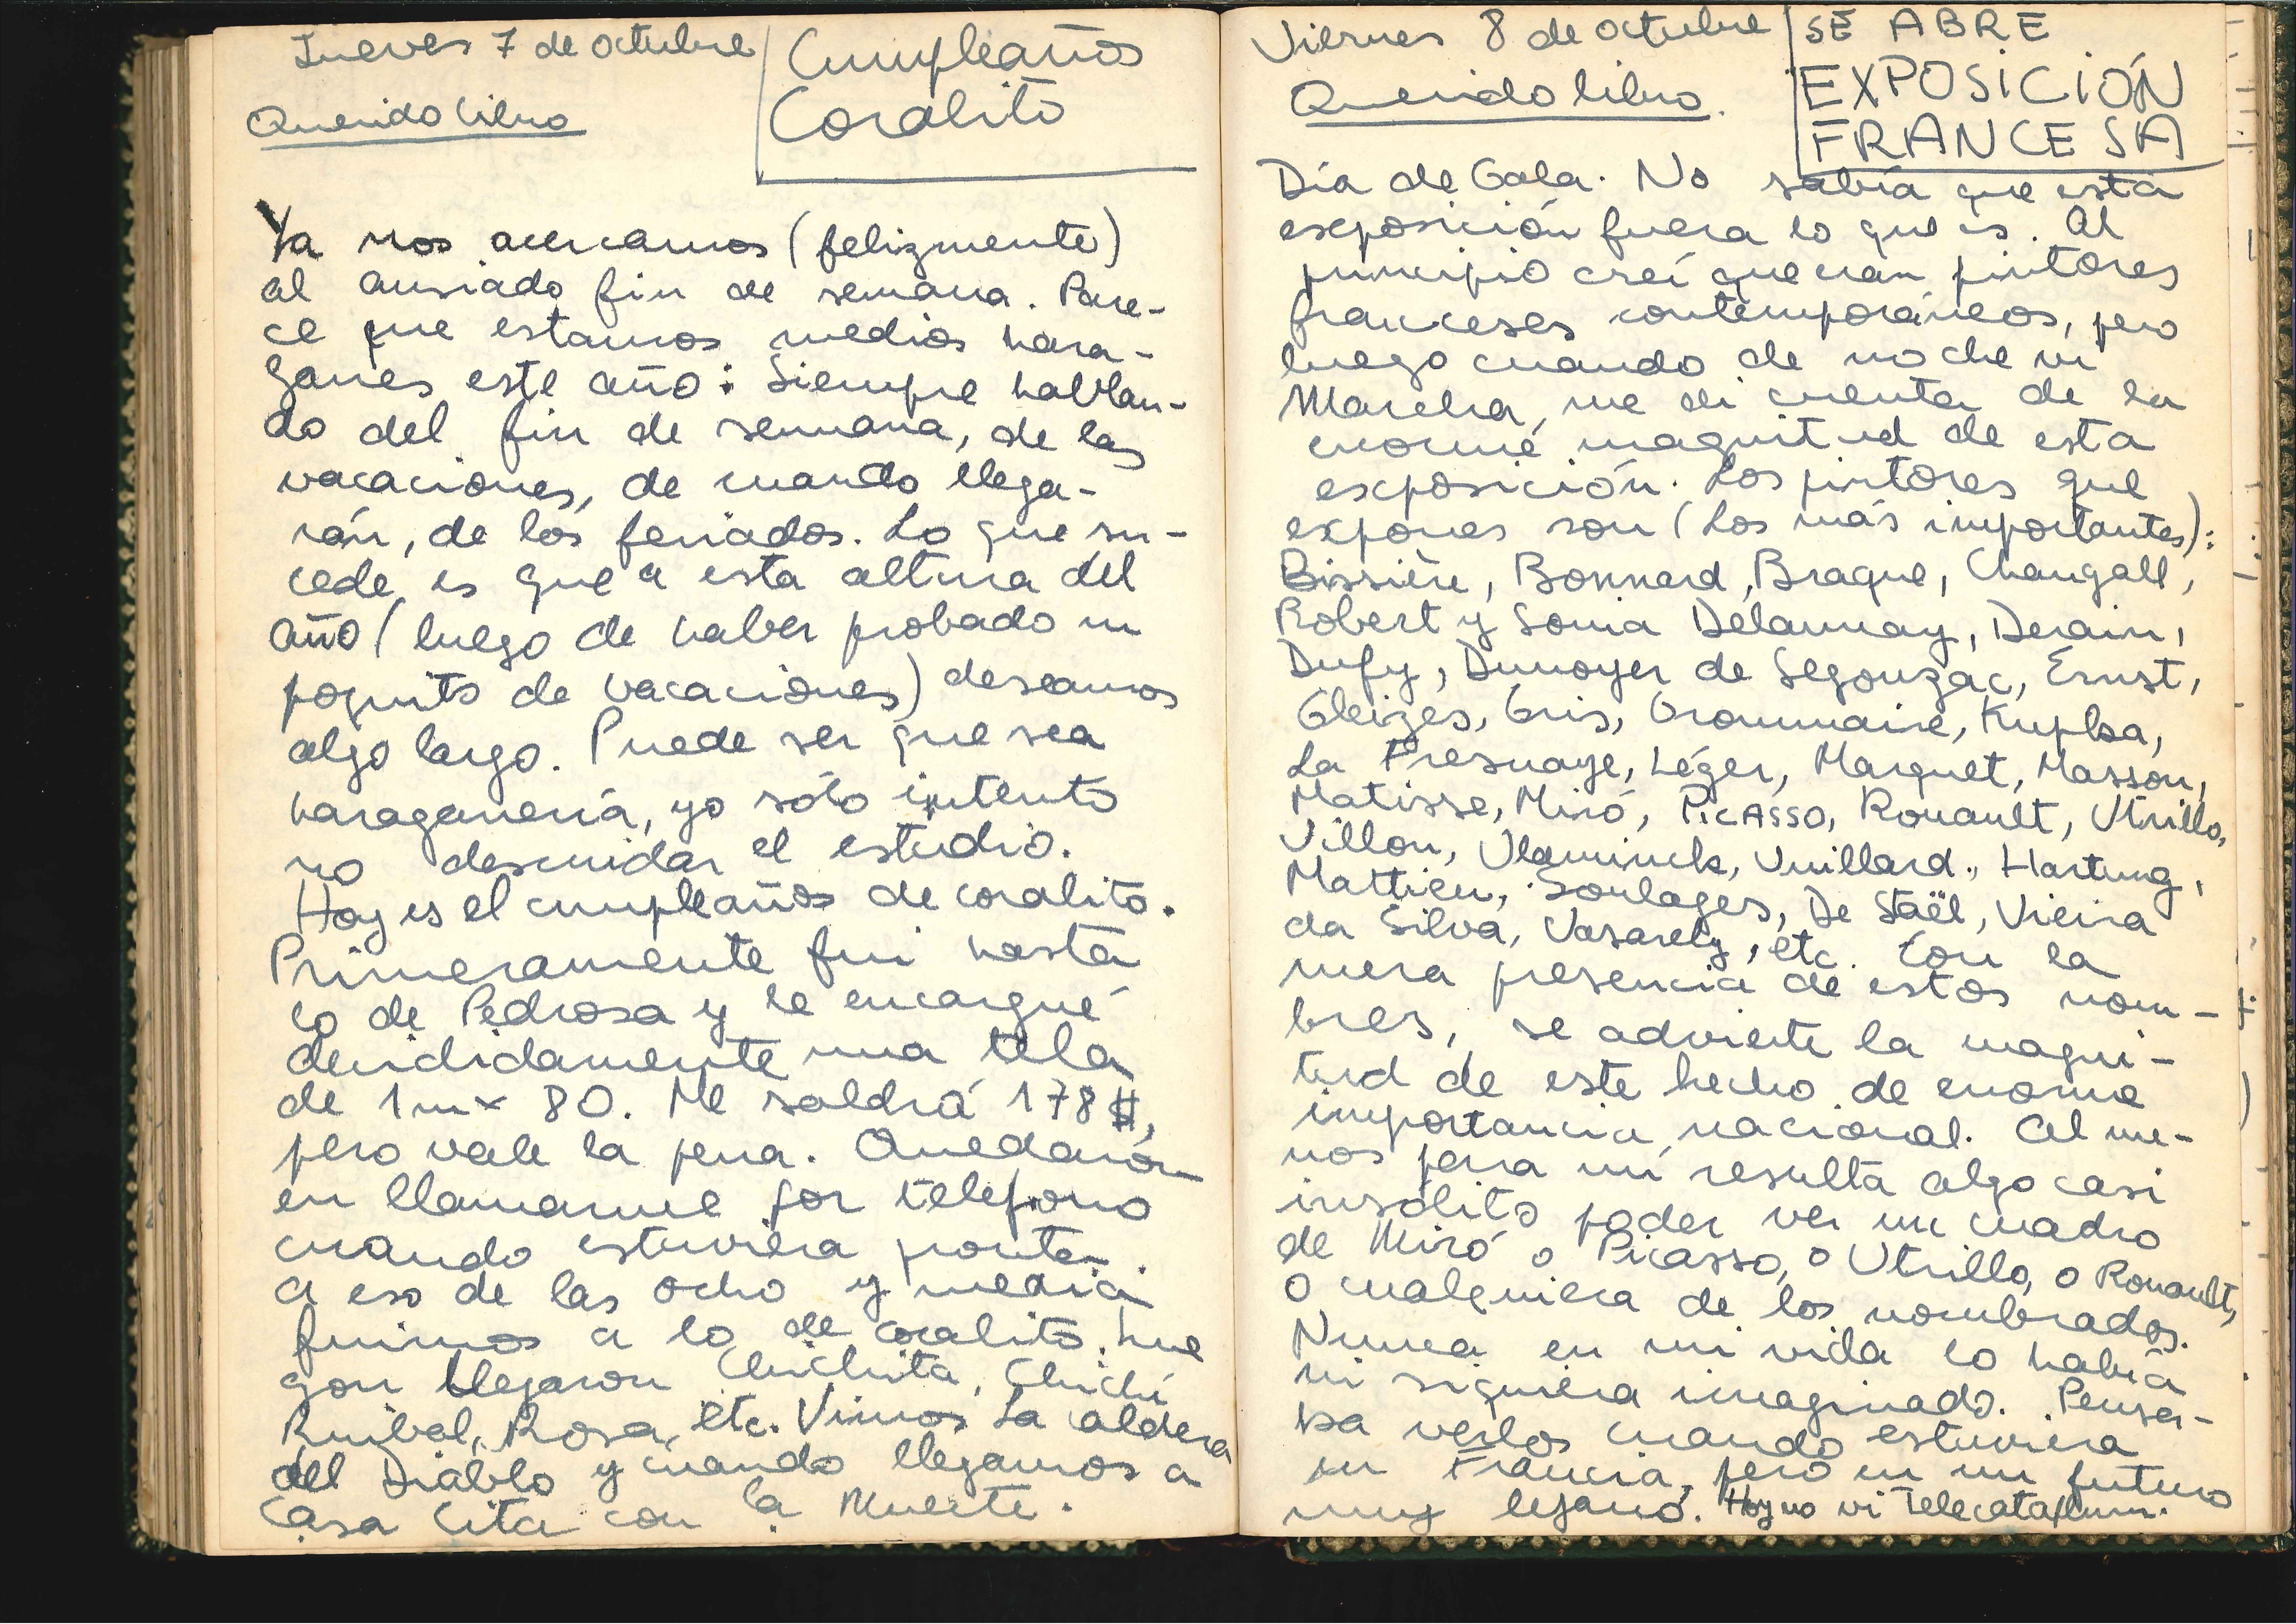 Jueves 7 de octubre
Cumpleaños
Coralito
Querido Libro
Ya nos acercamos (felizmente)
al ansiado fin de semana. Pare-
ce que estamos medios hara-
ganes este año: Siempre hablan-
do del fin de semana, de las
vacaciones, de cuando llega-
rán, de los feriados. Lo que su-
cede es que a esta altura del
año (luego de haber probado un
poquito de vacaciones) deseamos
algo largo. Puede ser que sea
haraganería, yo sólo intento
no descuidar el estudio.
Hoy es el cumpleaños de coralito.
Primeramente fui hasta
lo de Pedrosa y le encargué
decididamente una tela
de 1m x 80. Me saldrá 178 $,
pero vale la pena. Quedaron
en llamarme por teléfono
cuando estuviera pronta.
a eso de las ocho y media
fuimos a lo de coralito. Lue
gon llegaron Chichita, Chichí
Rosa, etc. Vimos La aldera
del Diablo y cuando llegamos a
casa Cita con la Muerte.
Viernes 8 de octubre
SE ABRE
EXPOSICIÓN
FRANCESA
Querido libro.
Día de Gala. No sabía que esta
exposición fuera lo que es. Al
principio creí que eran pintores
franceses contemporáneos, pero
luego cuando de noche vi
Marcha, me di cuenta de la
enorme magnitud de esta
exposición. Los pintores que
expones son (Los más importantes):
Bissière, Bonnard, Braque, Changall,
Robert y Sonia Delaunay, Derain,
Dufy, Dunoyer de Segonzac, Ernst,
Gleizes, Gris, Grommaire, Kupka,
La Fresnaye, Léger, Marquet, Masson,
Matisse, Miró, PICASSO, Rouault, Utrillo,
Villon, Vlaminck, Vuillard, Hartung,
Mattieu, Soulages, De Staël, Vieira
da Silva, Vasarely, etc. Con la
mera presencia de estos nom-
bres, se advierte la magni-
tud de este hecho de enorme
importancia nacional. Al me-
nos para mí resulta algo casi
insólito poder ver un cuadro
de Miró o Picasso, o Utrillo, o Rouault,
o cualquiera de los nombrados.
Nunca en mi vida lo había
ni siquiera imaginado. Pensa-
ba verlos cuando estuviera
en Francia, pero en un futuro
muy lejano. Hoy no vi Telecataplum.